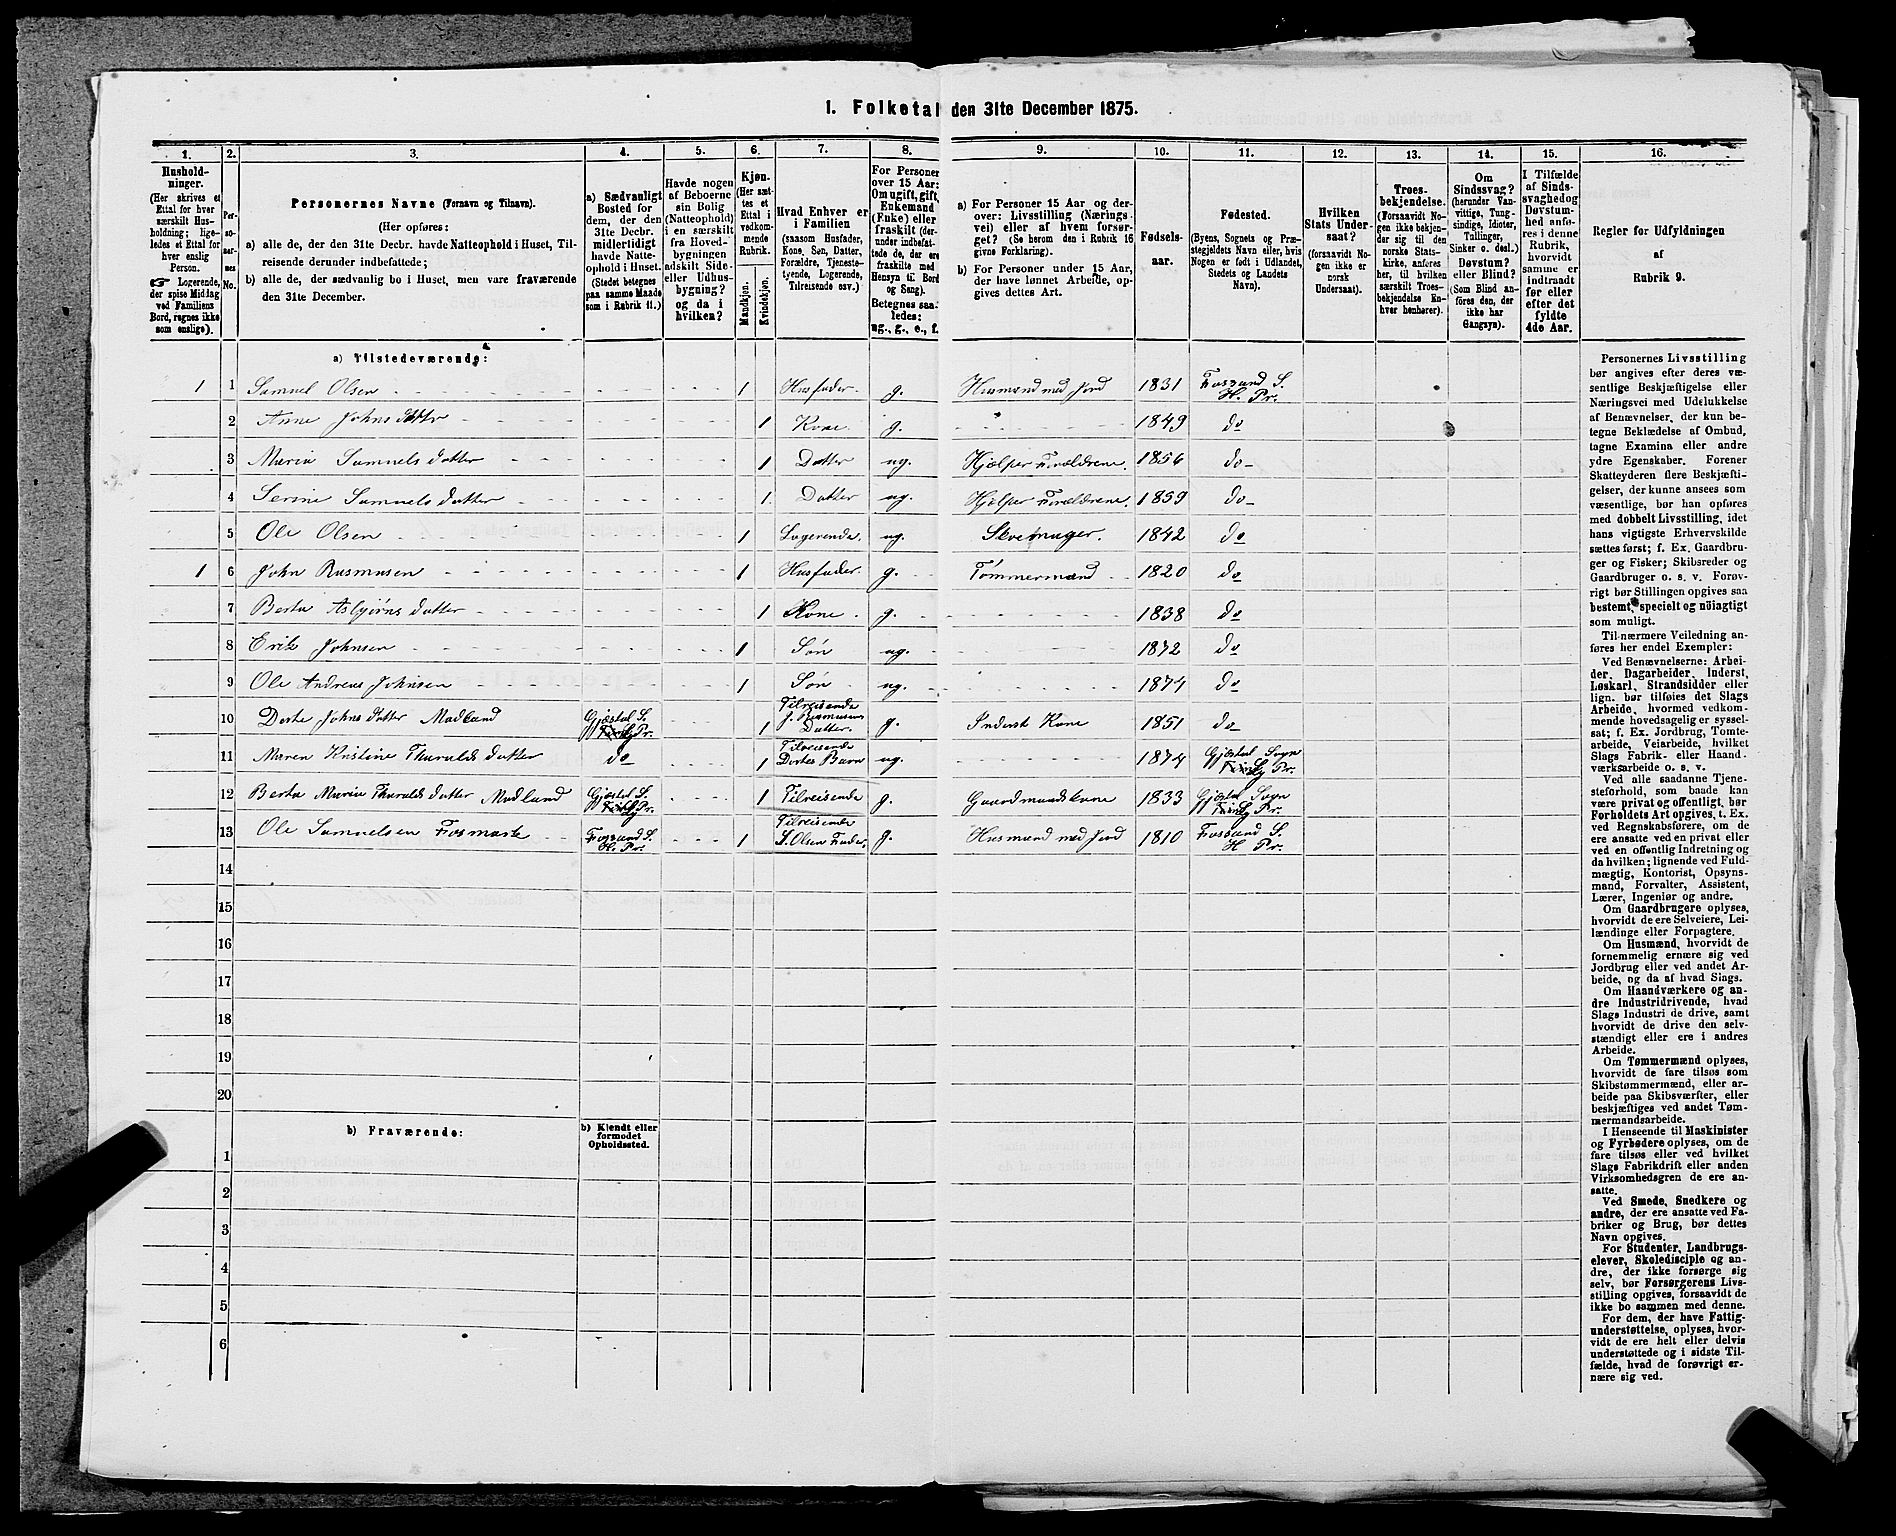 1. Folketal den 31te December 1875.
1. 2. 3. 4. 5. 6. 7. 8. 9. 10. 11. 12. 13. 14. 15. 16.
Hushold-
ninger.
(Her skrives et
Ettal for hver
særskilt Hus-
holdning; lige-
ledes et Ettal for
hver enslig
Person.
☞ Logerende,
der spise Middag
ved Familiens
Bord, regnes ikke
som enslige).
Per-
so-
ner-
nes
No.
Personernes Navne (Fornavn og Tilnavn).
(Her opføres:
a) alle de, der den 31te Decbr. havde Natteophold i Huset, Til-
reisende derunder indbefattede;
b) alle de, der sædvanlig bo i Huset, men vare fraværende
den 31te December.
a) Sædvanligt
Bosted for
dem, der den
31te Decbr.
midlertidigt
havde Natte-
ophold i Huset.
(Stedet betegnes
paa samme Maade
som i Rubrik 11.)
Havde nogen
af Beboerne
sin Bolig
(Natteophold)
i en særskilt
fra Hoved-
bygningen
adskilt Side-
eller Udhus-
bygning?
og da i
hvilken?
Kjøn.
(Her sæt-
tes et
Ettal i
vedkom-
mende
Rubrik.
Mandkjøn.
Kvindekjøn.
Hvad Enhver er
i Familien
(saasom Husfader,
Kone, Søn, Datter,
Forældre, Tjeneste-
tyende, Logerende,
Tilreisende osv.)
For Personer
over 15 Aar:
Om ugift, gift,
Enkemand
(Enke) eller
fraskilt (der-
under indbefat-
tede de, der ere
fraskilte med
Hensyn til Bord
og Seng).
Betegnes saa-
ledes:
ug., g., e., f.
a) For Personer 15 Aar og der-
over: Livsstilling (Nærings-
vei) eller af hvem forsør-
get? (Se herom den i Rubrik 16
givne Forklaring).
b) For Personer under 15 Aar,
der have lønnet Arbeide, op-
gives dettes Art.
Fødsels-
aar.
Fødested.
(Byens, Sognets og Præ-
stegjeldets Navn eller, hvis
Nogen er født i Udlandet,
Stedets og Landets
Navn).
Hvilken
Stats Under-
saat?
(forsaavidt No-
gen ikke er
norsk
Undersaat).
Troes-
bekjendelse.
(Forsaavidt No-
gen ikke bekjen-
der sig til den
norske Stats-
kirke, anføres
her, til hvilken
særskilt Troes-
bekjendelse En-
hver henhører).
Om
Sindssvag?
(herunder Van-
vittige, Tung-
sindige, Idioter,
Tullinger,
Sinker o. desl.)
Døvstum?
eller Blind?
(Som Blind an-
føres den, der
ikke har
Gangsyn).
I Tilfælde
af Sinds-
svaghed og
Døvstum-
hed anfø-
res i denne
Rubrik,
hvorvidt
samme er
indtraadt
før eller
efter det
fyldte
4de Aar.
Regler for Udfyldningen
af
Rubrik 9.
a) Tilstedeværende:
1 1 Samuel Olsen 1 Husfader. g. Husmand med Jord 1831 Fossand S. H. Pr.
2 Anne Johns datter 1 Kone g. 1849 do
3 Maria Samuels datter 1 Datter ug. Hjælper Forældrene. 1856 do
4 Serine Samuels datter 1 Datter ug. Hjelper Forældrene. 1859 do
5 Ole Olsen 1 Logerende. ug. Skoemager. 1842 do
1 6 John Rasmusen 1 Husfader g. Tømmermænd 1820 do
7 Berta Asbjørns datter 1 Kone. g. 1838 do
8 Erik Johnsen 1 Søn ug. 1872 do
9 Ole Andreas Johnsen 1 Søn ug. 1874 do
10 Dorte Johns datter Madland Gjæstal S. Ly Pr. 1 Tilreisende J. Rasmusens Datter. g. Inderst Kone 1851 do
11 Maren Kristine Thoralds datter do 1 Tilreisende Dortes Barn ug. 1874 Gjæstal Sogn Ly Pr.
12 Berta Maria Thoralds datter Madland Gjæstal S. Ly Pr. 1 Tilreisende g. Gaardmandskone 1833 Gjæstal Sogn Ly Pr.
13 Ole Samuelsen Fosmark Fossand S. H. Pr. 1 Tilreisende S. Olsen Fader. g. Husmand med Jord 1810 Fossand S. H Pr.
14
15
16
17
18
19
20
b) Fraværende:
b) Kjendt eller
formodet
Opholdssted.
1
2
3
4
5
6
Personernes Livsstilling
bør angives efter deres væ-
sentlige Beskjæftigelse eller
Næringsvei med Udelukkelse
af Benævnelser, der kun be-
tegne Beklædelse af Ombud,
tagne Examina eller andre
ydre Egenskaber. Forener
Skatteyderen flere Beskjæfti-
gelser, der kunne ansees som
væsentlige, bør han opføres
med dobbelt Livsstilling, idet
hans vigtigste Erhvervskilde
sættes først; f. Ex. Gaardbru-
ger og Fisker; Skibsreder og
Gaardbruger o. s. v. Forøv-
rigt bør Stillingen opgives saa
bestemt, specielt og nöiagtigt
som muligt.
Til nærmere Veiledning an-
føres her endel Exempler:
Ved Benævnelserne: Arbei-
der, Dagarbeider, Inderst,
Løskarl, Strandsidder eller
lign. bør tilføies det Slags
Arbeide, hvormed vedkom-
mende hovedsagelig er syssel-
sat; f. Ex. Jordbrug, Tomte-
arbeide, Veiarbeide, hvilket
Slags Fabrik- eller Haand-
værksarbeide o. s. v.
Ved alle saadanne Tjene-
steforhold, som baade kan
være privat og offentligt, bør
Forholdets Art opgives, t. Ex.
ved Regnskabsførere, om de
ere ansatte ved en privat eller
ved en offentlig Indretning og
da hvilken; lignende ved Fuld-
mægtig, Kontorist, Opsyns-
mand, Forvalter, Assistent,
Lærer, Ingeniør og andre.
Om Gaardbrugere oplyses,
hvorvidt de ere Selveiere, Lei-
lændinge eller Forpagtere.
Om Husmænd, hvorvidt de
fornemmelig ernære sig ved
Jordbrug eller ved andet Ar-
beide, og da af hvad Slags.
Om Haandværkere og an-
dre Industridrivende, hvad
Slags Industri de drive, samt
hvorvidt de drive den selv-
stændigt eller ere i andres
Arbeide.
Om Tømmermænd oplyses,
hvorvidt de fare tilsøs som
Skibstømmermænd, eller ar-
beide paa Skibsværfter, eller
beskjæftiges ved andet Tøm-
mermandsarbeide.
I Henseende til Maskinister
og Fyrbødere oplyses, om de
fare tilsøs eller ved hvilket
Slags Fabrikdrift eller anden
Virksomhedsgren de ere an-
satte.
Ved Smede, Snedkere og
andre, der ere ansatte ved Fa-
briker og Brug, bør dettes
Navn opgives.
For Studenter, Landbrugs-
elever, Skoledisciple og an-
dre, der ikke forsørge sig
selv, bør Forsørgerens Livs-
stilling opgives, forsaavidt de
ikke bo sammen med denne.
For dem, der have Fattig-
understøttelse, oplyses, hvor-
vidt de ere helt eller delvis
understøttede og i sidste Til-
fælde, hvad de forøvrigt er-
nære sig ved.